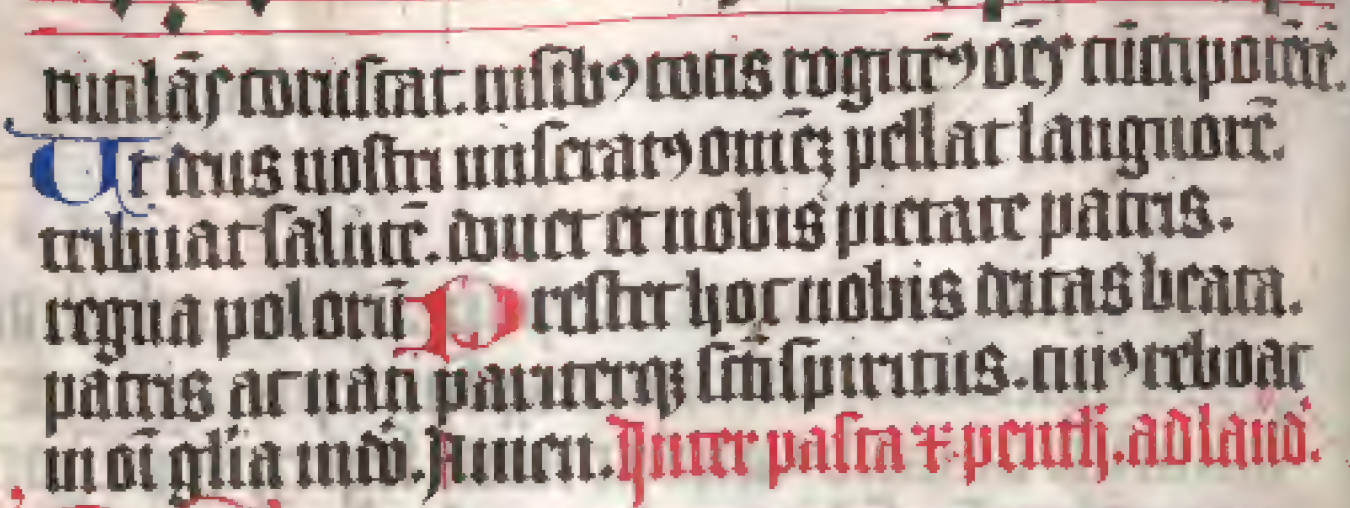 rutilās coruscat. nisibꝯ totis rogitēꝯ oēs cūctipotētē.
Ut deus nostri miseratꝯ omēꝫ pellat languorē.
tribuat salutē. donet et nobis pietate patris.
regna polorū Prestet hoc nobis deitas beata.
patris ac nati pariterqꝫ scī spiritus. cuiꝯ reboat
in oī glīa mūdo. Amen. Inter pasca ⁊ penth. ad laud.